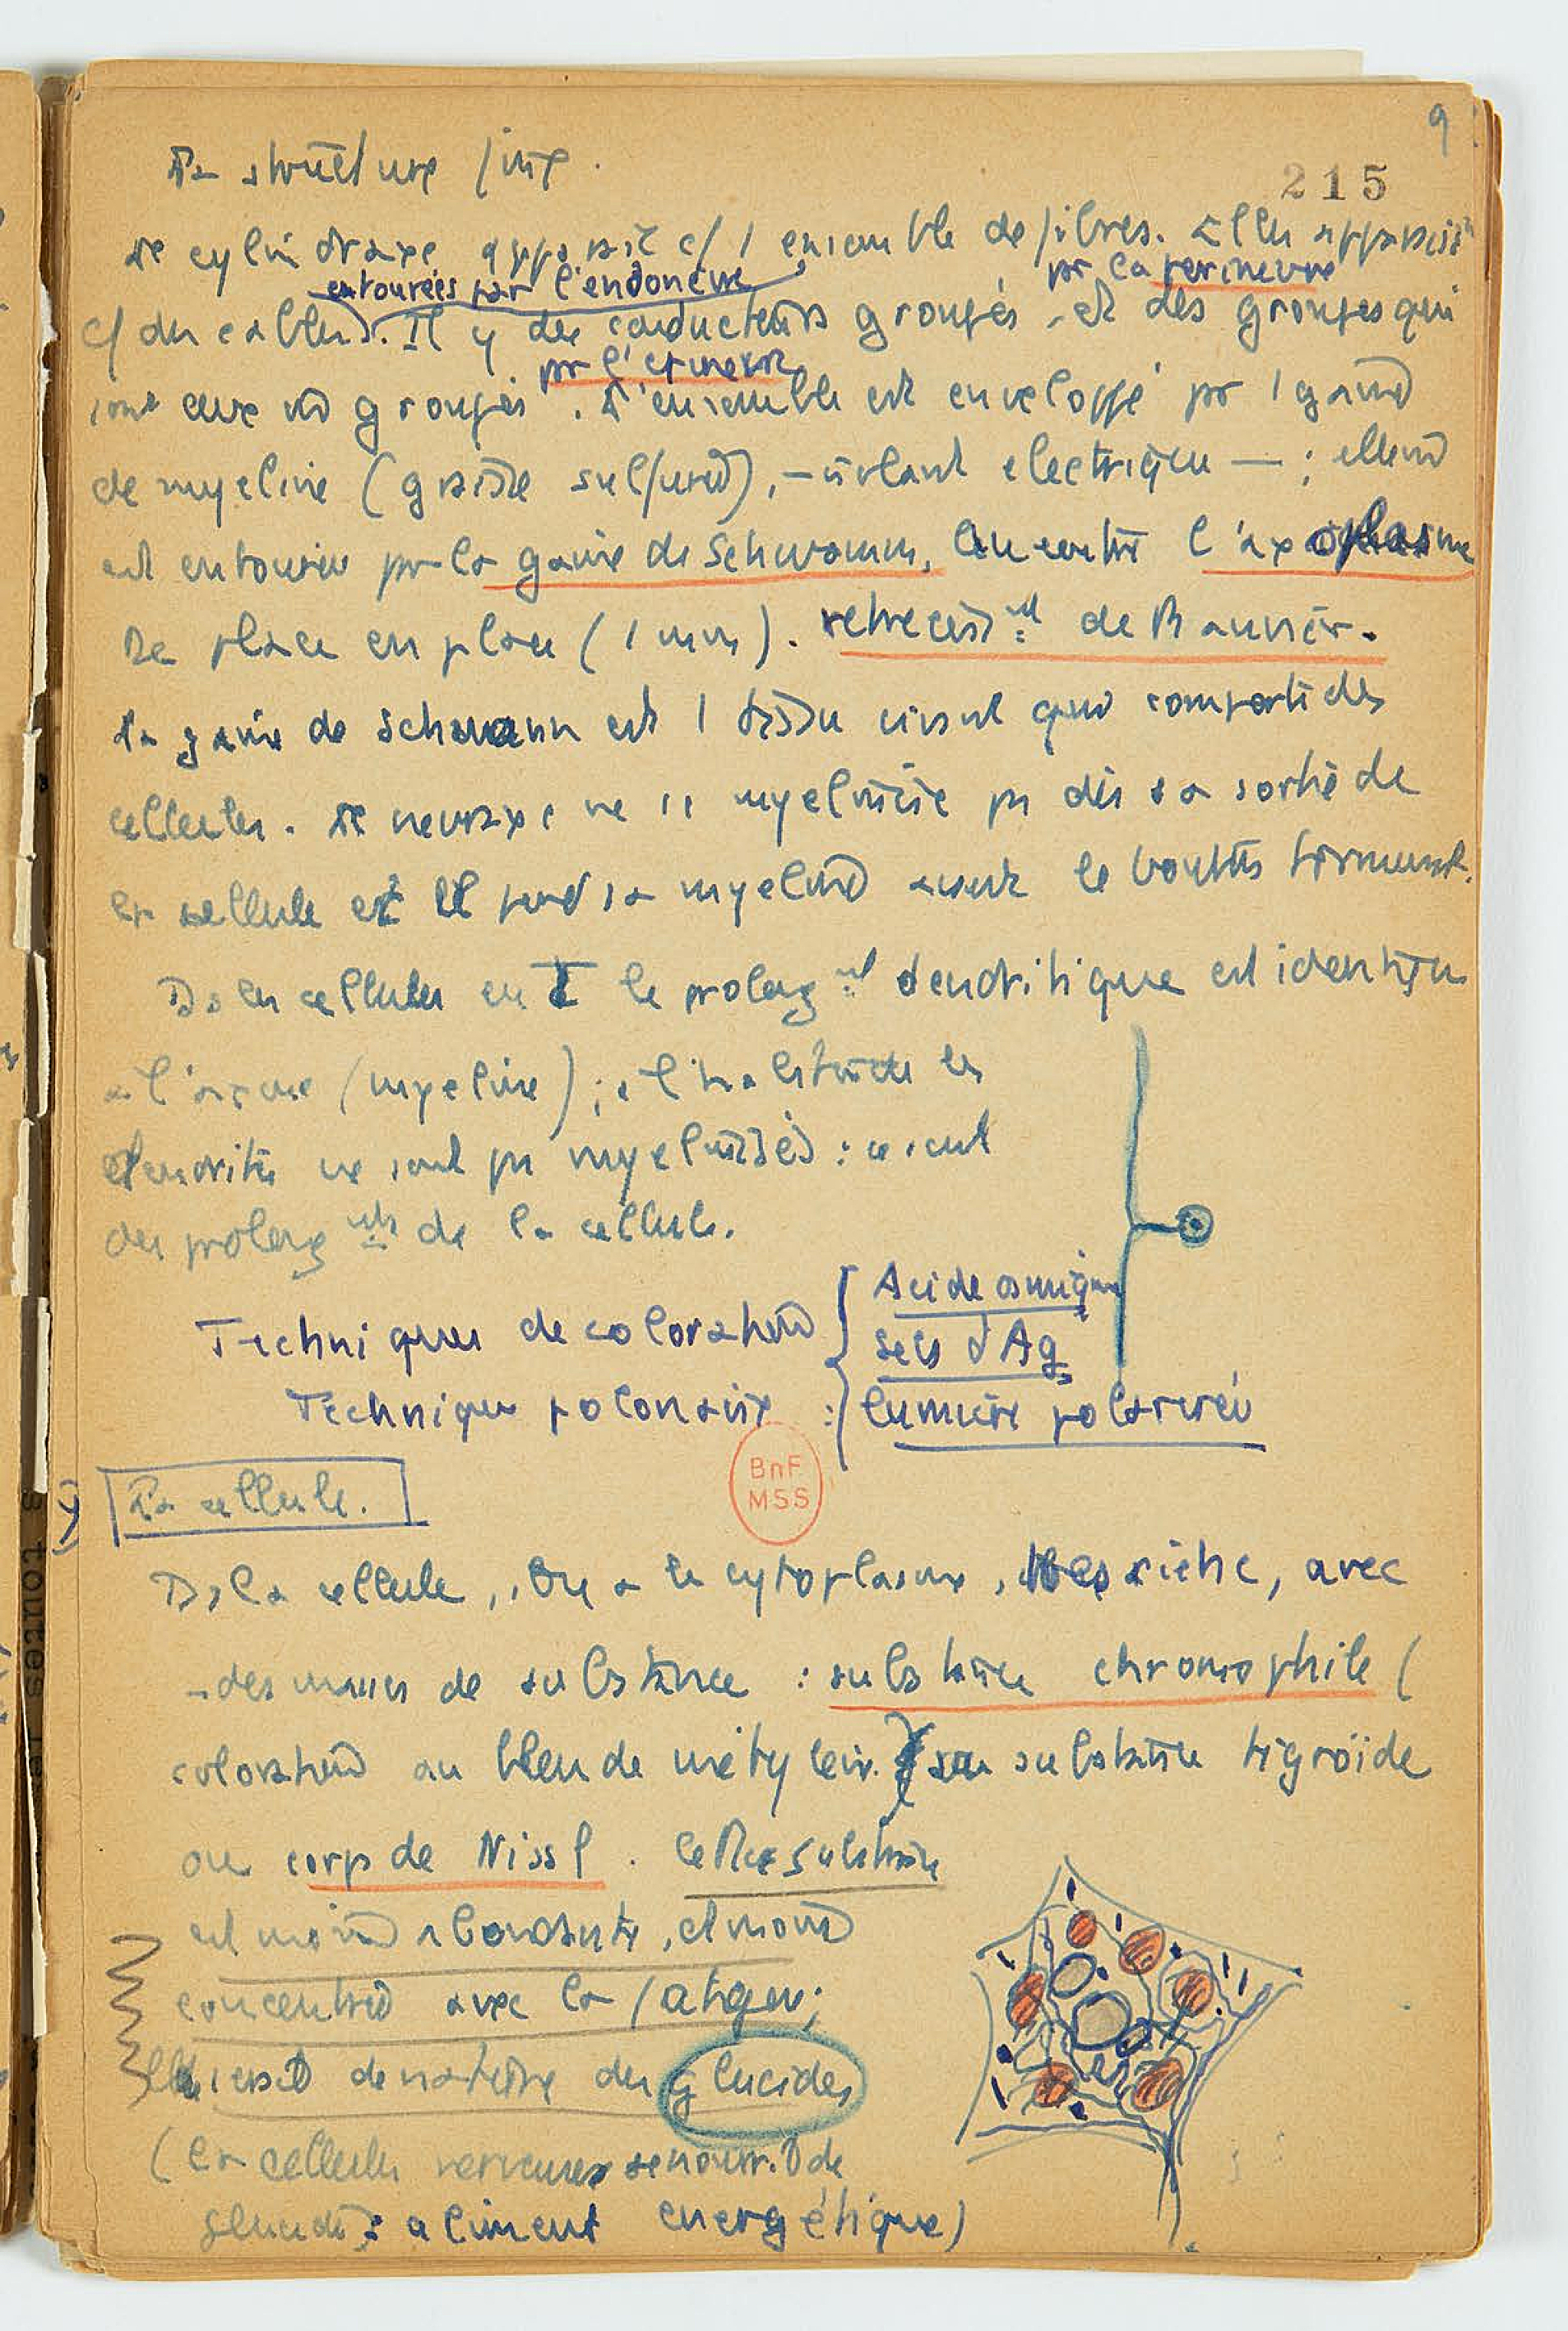 9
215
La structure fine.
Le cylindraxe apparait c/ 1 ensemble de fibres. Elles apparaiss^t
entourées par l'endonèvre
par le perinevre
c/ des cables. Il y des conducteurs groupés et des groupes qui
par l'épinèvre
sont eux groupés. L'ensemble est enveloppé par 1 gaine
de myeline (graisse sulfurée), - isolant électrique - ; elle
est entourée par la gaine de Schwann, Au centre l'axoplasme
De place en place (1 mm). retreciss^nt de Ranvier.
La gaine de Schwann est 1 tissu qui comporte des
cellules. Le neuraxe ne se myelinise pas dès sa sortie de
la cellule et il perd sa myeline avant le boutons terminal.
Ds les cellules en T le prolong^nt dendritique est identique
a l'axone (myeline) ; les
dendrites ne sont pas myelinisés : ce sont
des prolong^nts de la cellule.
Techniques de coloration { Acide osmique
sels d'Ag
Technique polonaise : lumière polarisée
BnF
MSS
γ) La cellule.
Ds la cellule, on a le cytoplasme, très riche, avec
- des masses de substance : substance chromophile (
coloration au bleu de méthylène) ou substance tigroïde
ou corps de Nissl. Cette substance
est moins abondante, et moins
concentrée avec la fatigue ;
elle serait de nature des glucides
(la cellules nerveuses se nourr. de
glucides : aliment energétique)